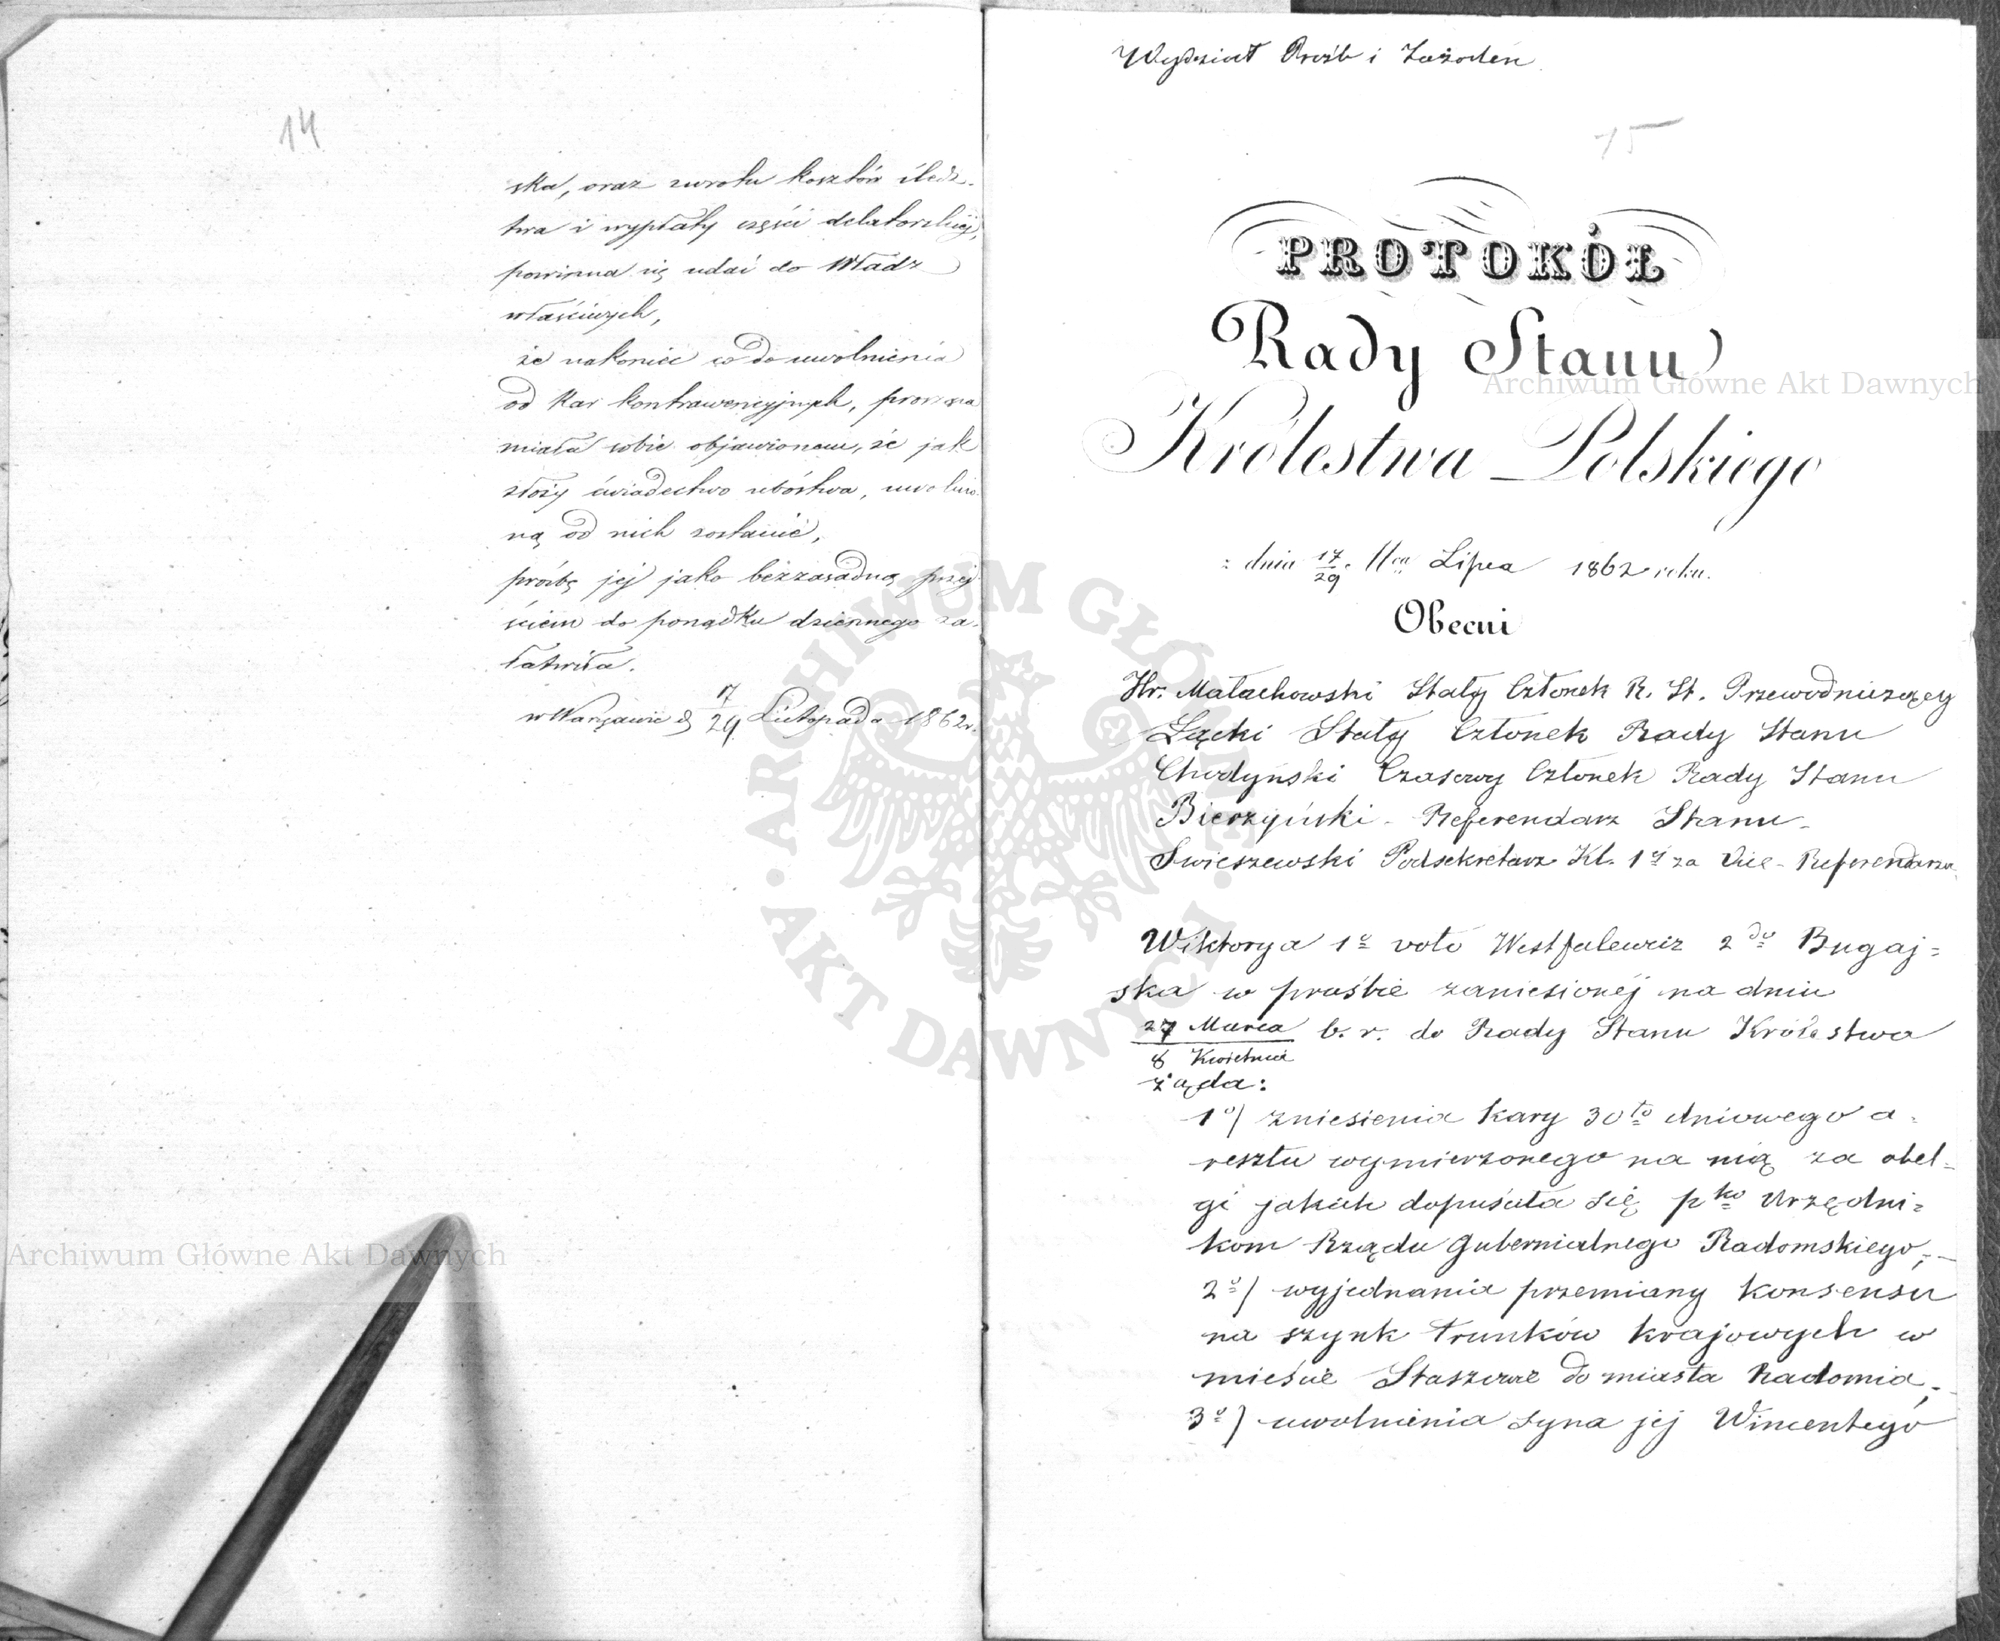 14
ska, oraz zwrotu kosztów śledz-
twa i wypłaty części delatorskiej,
powinna się udać do Władz
właściwych,
że nakoniec co do uwolnienia
od kar kontrawencyjnych,
miała sobie objawionem, że jak
złoży świadectwo ubóstwa, uwolnio-
ną od nich zostanie,
prośbę jej jako bezzasadną przej-
ściem do porządku dziennego za-
łatwiła.
w Warszawie d 17/29 Listopada 1862 r.
Wydział Próśb i Zażaleń
15
PROTOKÓŁ
Rady Stanu
Królestwa Polskiego
z dnia 17/29 Lipca 1862 roku.
Obecni
Hr. Małachowski Stały Członek R. St. Przewodniczący
Łącki Stały Członek Rady Stanu
Chodyński Czasowy Członek Rady Stanu
Bierzyński - Referendarz Stanu -
Swieszewski Podsekretarz Kl. 1éj za Vice - Referendarza
Wiktorya 1o voto Westfalewicz 2do Bugaj=
ska w prośbie zaniesionéj na dniu
27 Marca / 8 Kwietnia b. r. do Rady Stanu Królestwa
żąda:
1o) zniesienia kary 30to dniowego a-
resztu wymierzonego na nią za obel-
gi jakich dopuściła się pko Urzędni=
kom Rządu Gubernialnego Radomskiego, -
2o) wyjednania przemiany konsensu
na szynk trunków krajowych w
mieście Staszowie do miasta Radomia, -
3o) uwolnienia syna jej Wincentego
Archiwum Główne Akt Dawnych
Archiwum Główne Akt Dawnych
ARCHIWUM GŁÓWNE · AKT DAWNYCH ·